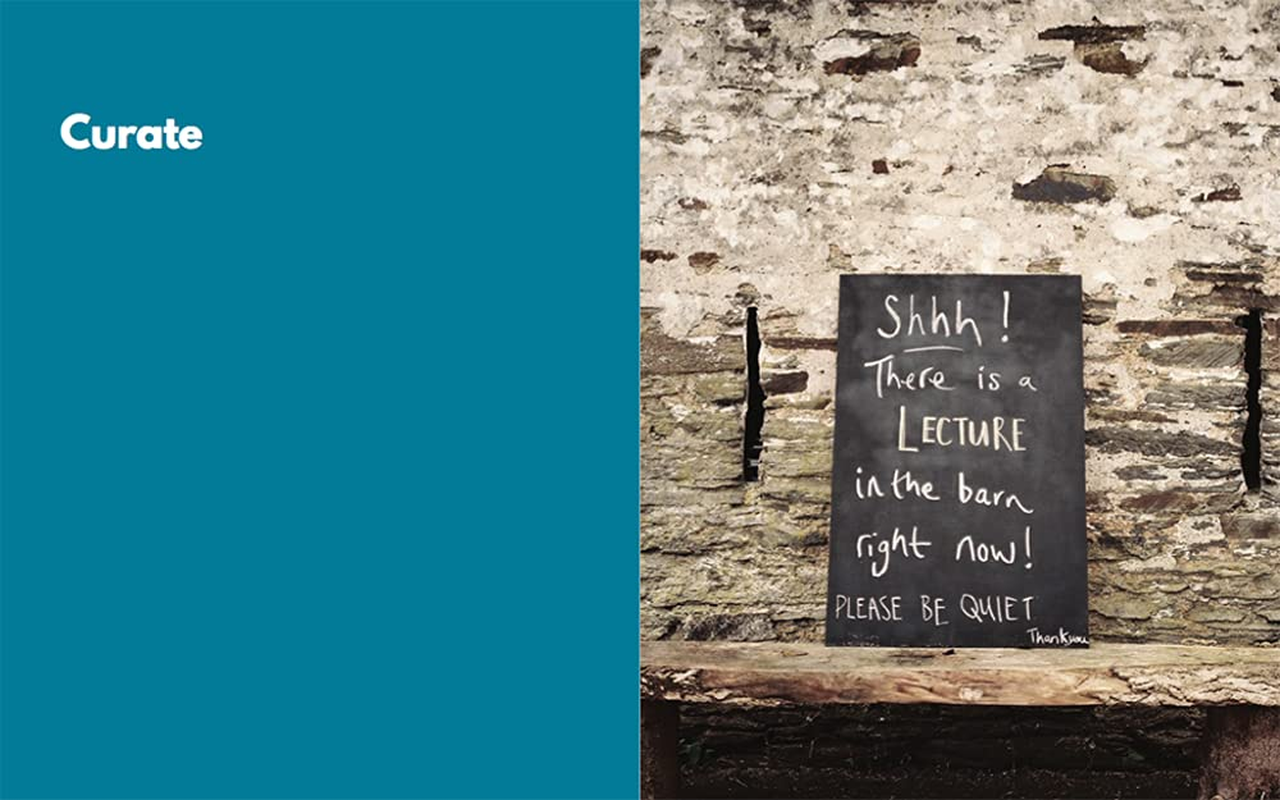 Curate
Shhh!
There is a
LECTURE
in the barn
right now!
PLEASE BE QUIET